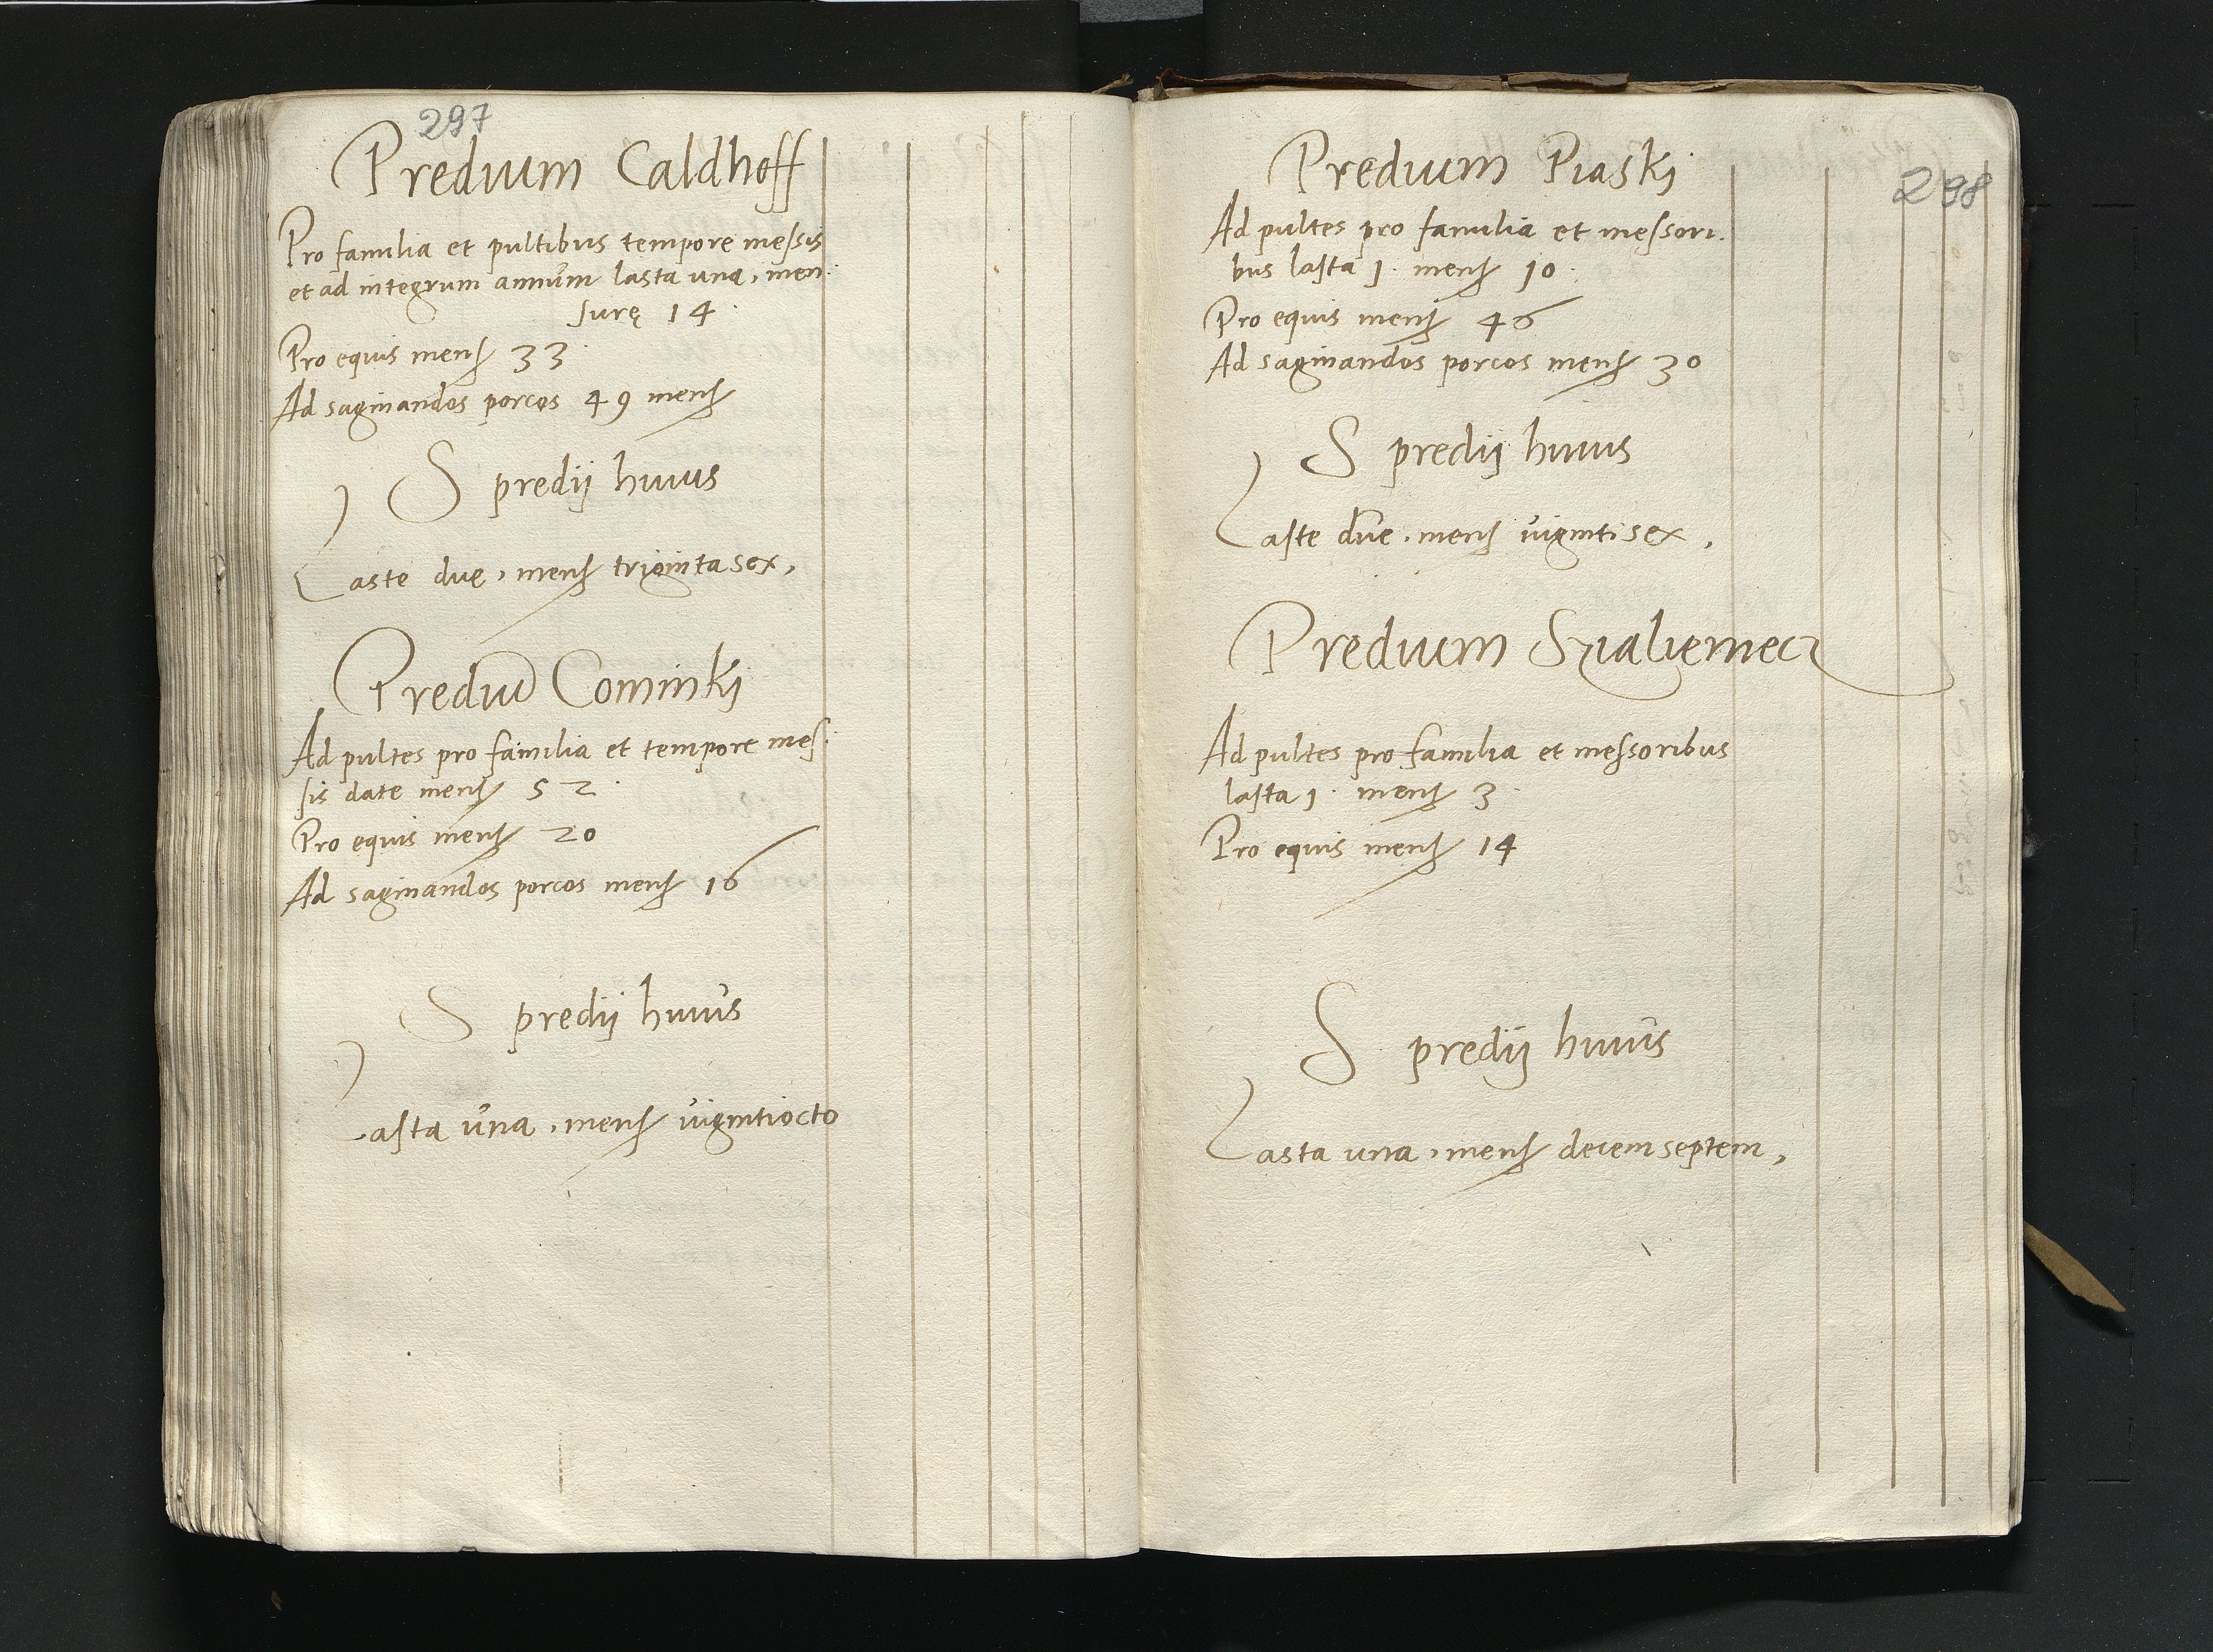 297
Predium Caldhoff
Pro familia et pultibus tempore messis
et ad integrum annum lasta una, men
surę 14
Pro equis mens 33
Ad saginandos porcos 49 mens
S predij huius
Laste duę, mens trigintasex,
Prediu Cominki
Ad pultes pro familia et tempore mes
sis date mens 52
Pro equis mens 20
Ad saginandos porcos mens 16
S predij huius
Lasta una, mens vigintiocto
298
Predium Piaski
Ad pultes pro familia et messori
bus lasta 1 mens 10
Pro equis mens 46
Ad saginandos porcos mens 30
S predij huius
Laste due, mens vigintisex,
Predium Szaliemecz
Ad pultes pro familia et messoribus
lasta 1 mens 3
Pro equis mens 14
S predij huius
Lasta una, mens decemseptem,